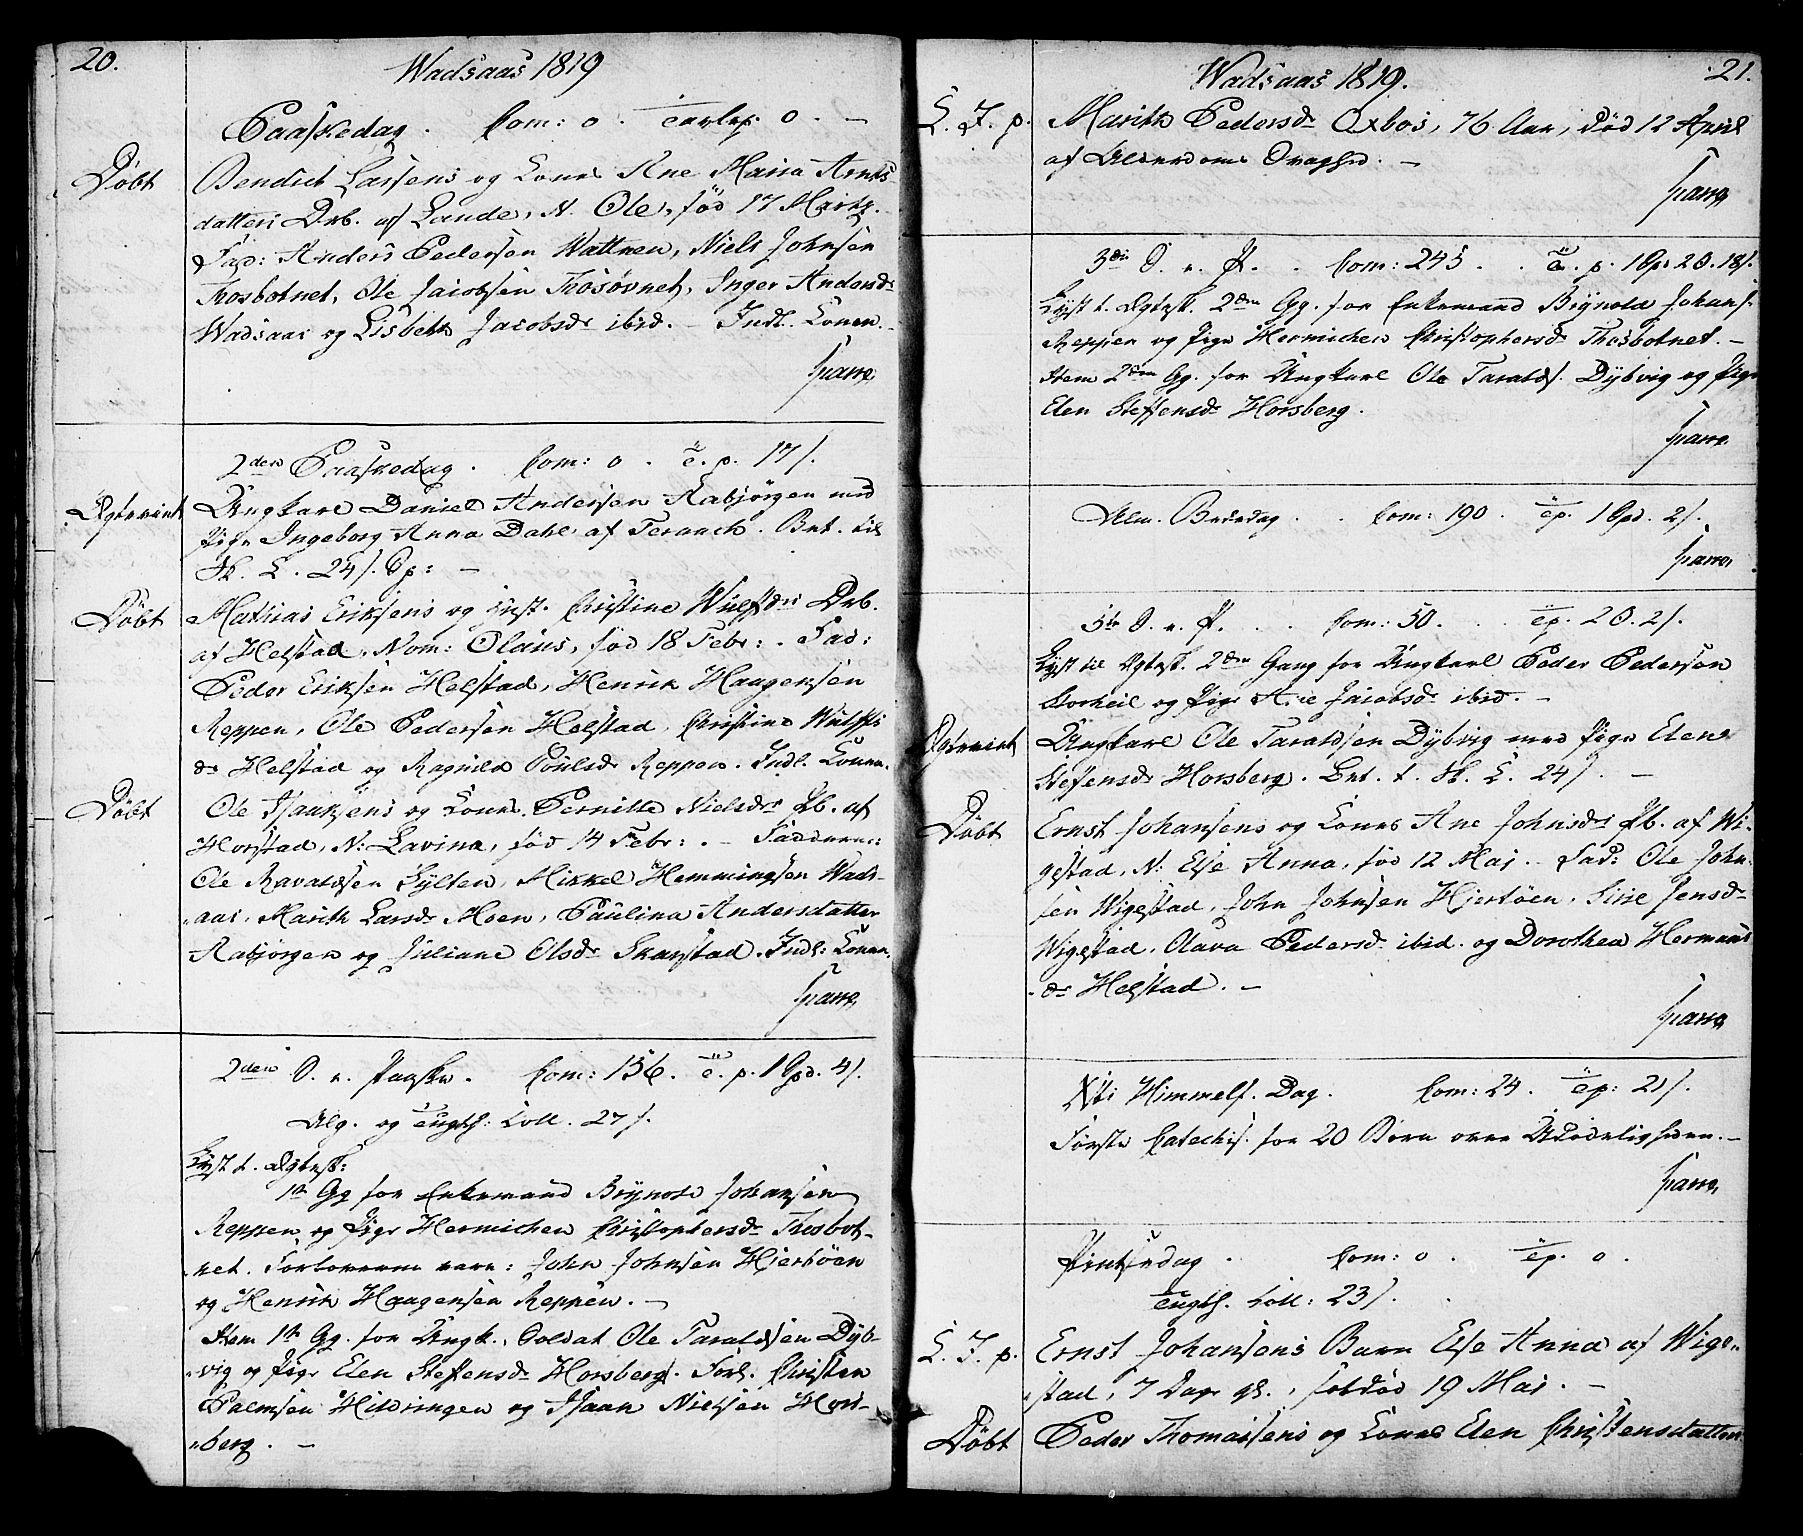 20.
Wadsaas 1819
Paaskedag. Com: 0. 0.
Døbt
Bendict Larsens og Kones Ane Maria Arnts-
datters Drb. af Lande, N. Ole, fød 17 Marts.
Fad: Anders Pedersen Wattnen, Niels Johnsen
Thosbotnet, Ole Jacobsen, Inger Andersdr
Wadsaas og Lisbeth Jacobsdr ibid. - Indl. Konen. -
2den Paaskedag. Com: 0. T. p. 17 s.
Ungkarl Daniel Andersen Aabjørgen med
Pige Ingeborg Anna Dahl af Teraach. Bet. til
Sk. L. 24 s. Sp: -
Døbt
Mathias Eriksens og Hust. Christine Wulfsdrs Drb.
af Helstad, Nom: Olaus, fød 18 Febr: . Fad:
Peder Eriksen Helstad, Henrik Haagensen
Reppen, Ole Pedersen Helstad, Christine Wulffs
dr Helstad og Ragnild Poulsdr Reppen. Indl. Konen.
Døbt
Ole Isaaksens og Kones Pernille Nielsdrs Pb. af
Horstad, N: Lavina, fød 14 Febr: . - Fadderne:
Ole Ravaldsen Sylten, Mikkel Hemmingsen Wads-
aas, Marith Larsdr Moen, Paulina Andersdatter
Aabjørgen og Juliane Olsdr Skarstad. Indl: Konen.
2den S. e. Paaske. Com: 156. T. p. 1 Spd. 4 s.
Alg. og Tugth: Coll. 27 s.
Lyst t. Ægtesk:
1te Gg for Enkemand Brynold Johansen
Reppen og Pige Hermichen Christophersdr Thosbot-
net. Forloverne vare: John Johnsen Hjertøen
og Henrik Haagensen Reppen. -
Item 1te Gg. for Ungk. Soldat Ole Taraldsen Dyb-
vig og Pige Elen Steffensdr Horsberg. Forl. Christen
Palmsen Hildringen og Isaak Nielsen Hors-
berg. -
21.
Wadsaas 1819.
L. J. p.
Marith Pedersdr Oxbos, 76 Aar, død 12 April
af Alderdoms Svaghed. -
3die S. e. P. Com: 245. T. p. 1 Sp: 2 O. 18 s.
Lyst t. Ægtesk. 2den Gg. for Enkemand Brynold Johans.
Reppen og Pige Hermichen Christophersdr Thosbotnet. -
Item 2den Gg. for Ungkarl Ole Taralds. Dybvig og Pige
Elen Steffensdr Horsberg.
Alm. Bededag. Com: 190. Tp. 1 Spd. 2 s.
5te S. e. P. Com: 50. Tp. 2 O. 2 s.
Lyst til Ægtesk. 2den Gang for Ungkarl Peder Pedersen
Storheil og Pige Ane Jacobsdr ibid. -
Ungkarl Ole Taraldsen Dybvig med Pige Elene
Steffensdr Horsberg. Bet. t. Sk. L. 24 s. -
Døbt
Ernst Johansens og Kones Ane Johnsdrs Pb. af Wi-
gestad, N: Else Anna, fød 12 Mai. - Fad: Ole John-
sen Wigestad, John Johnsen Hjertøen, Sirie Jensdr
Wigestad, Pedersdr ibid. og Dorothea Hermans
dr Helstad. -
Xsti Himmelf. Dag. Com: 24. Tp: 21 s.
Første Catechis. for 20 Børn over Udødeligheden. -
Pintsedag. Com: 0. Tp. 0.
Tugth. Coll: 23 s.
L. J. p.
Ernst Johansens Barn Else Anna af Wige-
stad, 7 Dage gl., død 19 Mai. -
Døbt
Peder Thomassens og Kones Elen Christensdatters